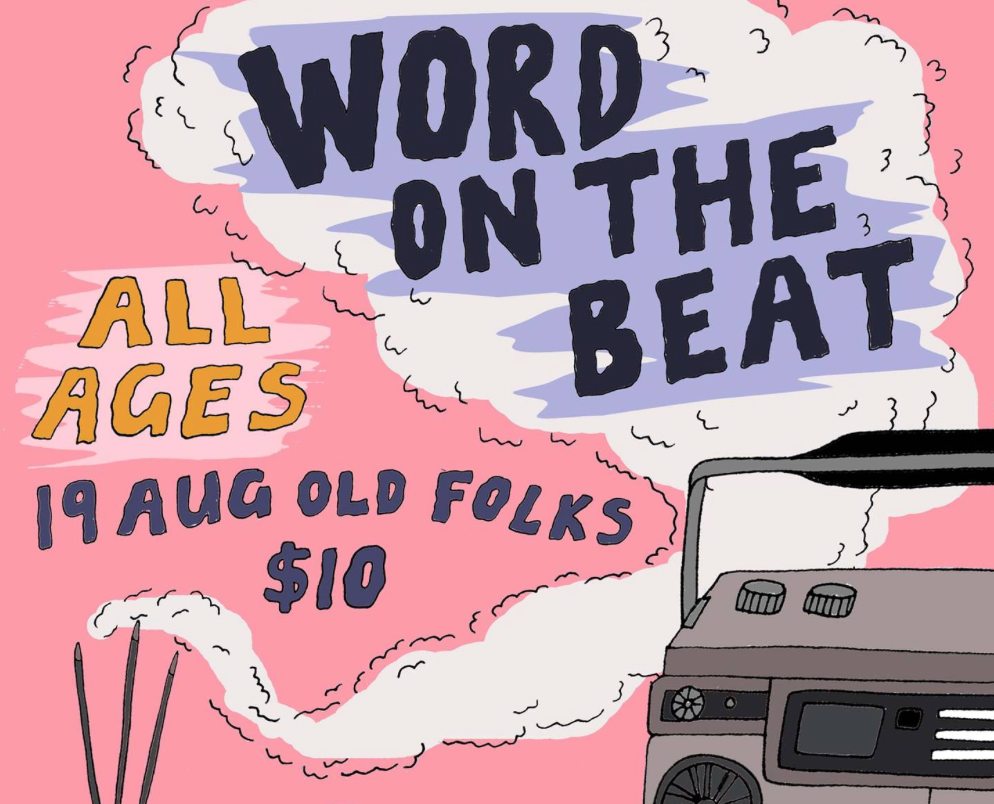 WORD
ON THE
BEAT
ALL
AGES
19 AUG OLD FOLKS
$10